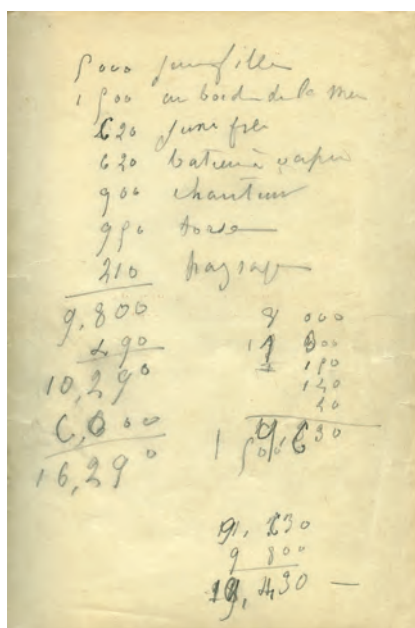 5000 jeune fille
1 500 au bord de la mer
620 jeune fille
620 bateau à vapeur
900 chanteuse
950 torse
210 paysage
9,800
490
10,290
6,000
16,290
8 000
1 300
150
120
20
9,630
1 500
9,630
9 800
19,430 —